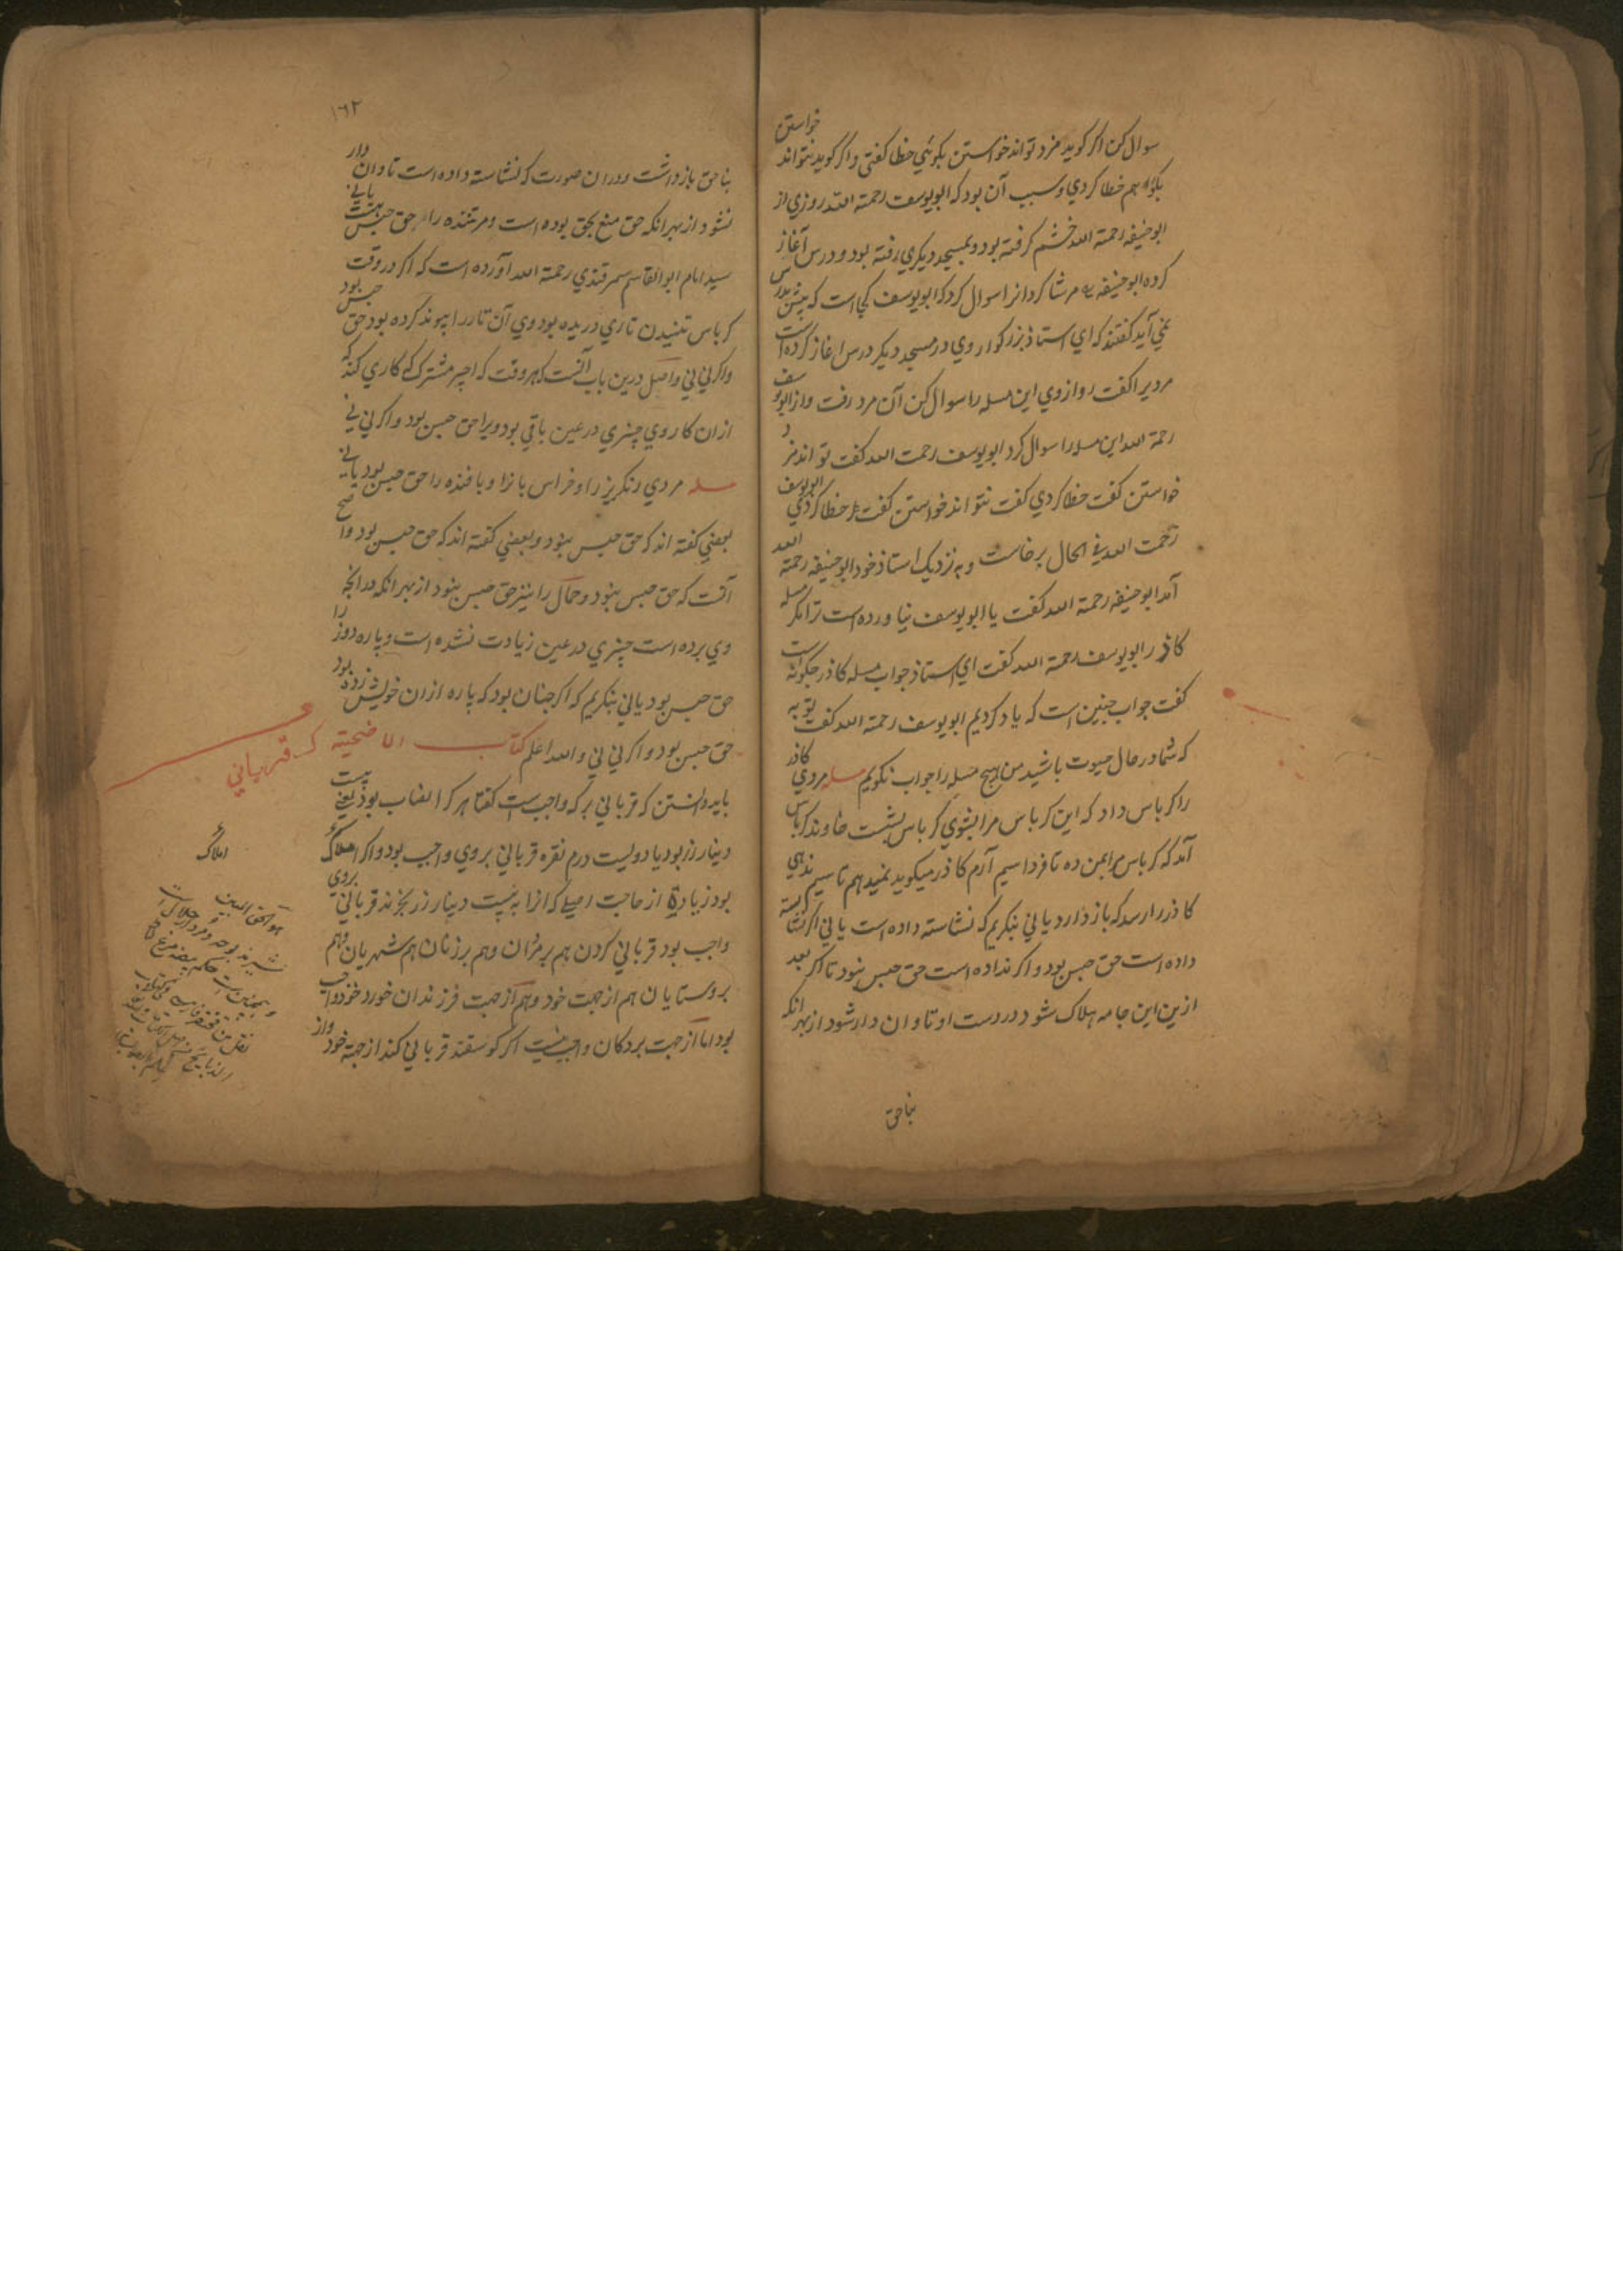 سوال کن اکر کوید مزد تواند خواستن بکوئي خطا کفتي واکر کوید نتواند خواستن
بکو هم خطا کردي وسبب آن بود که ابو یوسف رحمة الله روزي از
ابو حنیفه رحمة الله خشم کرفته بود وبمسجد دیکري رفته بود ودرس آغاز
کرده ابو حنیفه مر شاکردانرا سوال کرد که ابو یوسف کجا است که بدرس
نمي آید کفتند که اي استاذ بزرکوار وي در مسجد دیکر درس اغاز کرده است
مردیرا کفت رو از وي این مسله را سوال کن آن مرد رفت واز ابو یوسف
رحمة الله این مسله را سوال کرد ابو یوسف رحمت الله کفت تواند مزد
خواستن کفت خطا کردي کفت نتواند خواستن کفت خطا کردي ابو یوسف
رحمت الله في الحال برخاست وبه نزدیک استاذ خود ابو حنیفه رحمة الله
آمد ابو حنیفه رحمة الله کفت یا ابو یوسف نیاورده است ترا مکر مسله
کاذر ابو یوسف رحمة الله کفت اي استاذ جواب مسله کاذر چکونه است
کفت جواب چنین است که یاد کردیم ابو یوسف رحمة الله کفت توبه
که شما در حال حیوت باشید من هیچ مسله را جواب نکویم مسله مردي کاذر
را کرباس داد که این کرباس مرا بشوي کرباس بشست خاوند کرباس
آمد که کرباس بمن ده تا فردا سیم آرم کاذر میکوید نمیدهم تا سیم ندهي
کاذر را رسد که باز دارد یاني بنکریم که نشاسته داده است یاني اکر نشاسته
داده است حق حبس بود واکر نداده است حق حبس نبود تا اکر بعد
ازین این جامه هلاک شود در دست او تاوان دار شود از بهر انکه
بنا حق
۱۶۲
بنا حق باز داشت ودران صورت که نشاسته داده است تاوان دار
نشود از بهر انکه حق منع بحق بوده است ومر تننده را حق حبس هست یاني
سید امام ابو القاسم سمرقندي رحمة الله آورده است که اکر در وقت
کرباس تنیدن تاري دریده بود وي آن تار را پیوند کرده بود حق حبس بود
واکر ني ني واصل درین باب آنست که هر وقت که اجیر مشترک کاري کند که
از ان کار وي چیزي در عین باقي بود ویرا حق حبس بود واکر ني ني
مسله مردي رنکریز را وخراس بانرا وبافنده را حق حبس بود یاني
بعضي کفته اند که حق حبس نبود وبعضي کفته اند که حق حبس بود واصح
آنست که حق حبس نبود وحمال را نیز حق حبس نبود از بهر انکه در انچه
وي برده است چیزي در عین زیادت نشده است وپاره دوز را
حق حبس بود یاني بنکریم که اکر چنان بود که پاره از ان خویش زده بود
حق حبس بود واکر ني ني والله اعلم کتاب الاضحیته که قربانی
باید دانستن که قرباني بر که واجب است کفتا هر کرا نصاب بود یعني بیست
دینار زر بود یا دویست درم نقره قرباني بر وي واجب بود واکر املاک
بود زیاده از حاجت اصلي که انرا به بیست دینار زر بخرند قرباني بر وي
واجب بود قرباني کردن هم بر مردان وهم بر زنان هم شهریان وهم
بر روستایان هم از جهت خود وهم از جهت فرزندان خورد خود واجب
بود اما از جهت بردکان واجب نیست اکر کوسفند قرباني کند از جهة خود واز
املاک